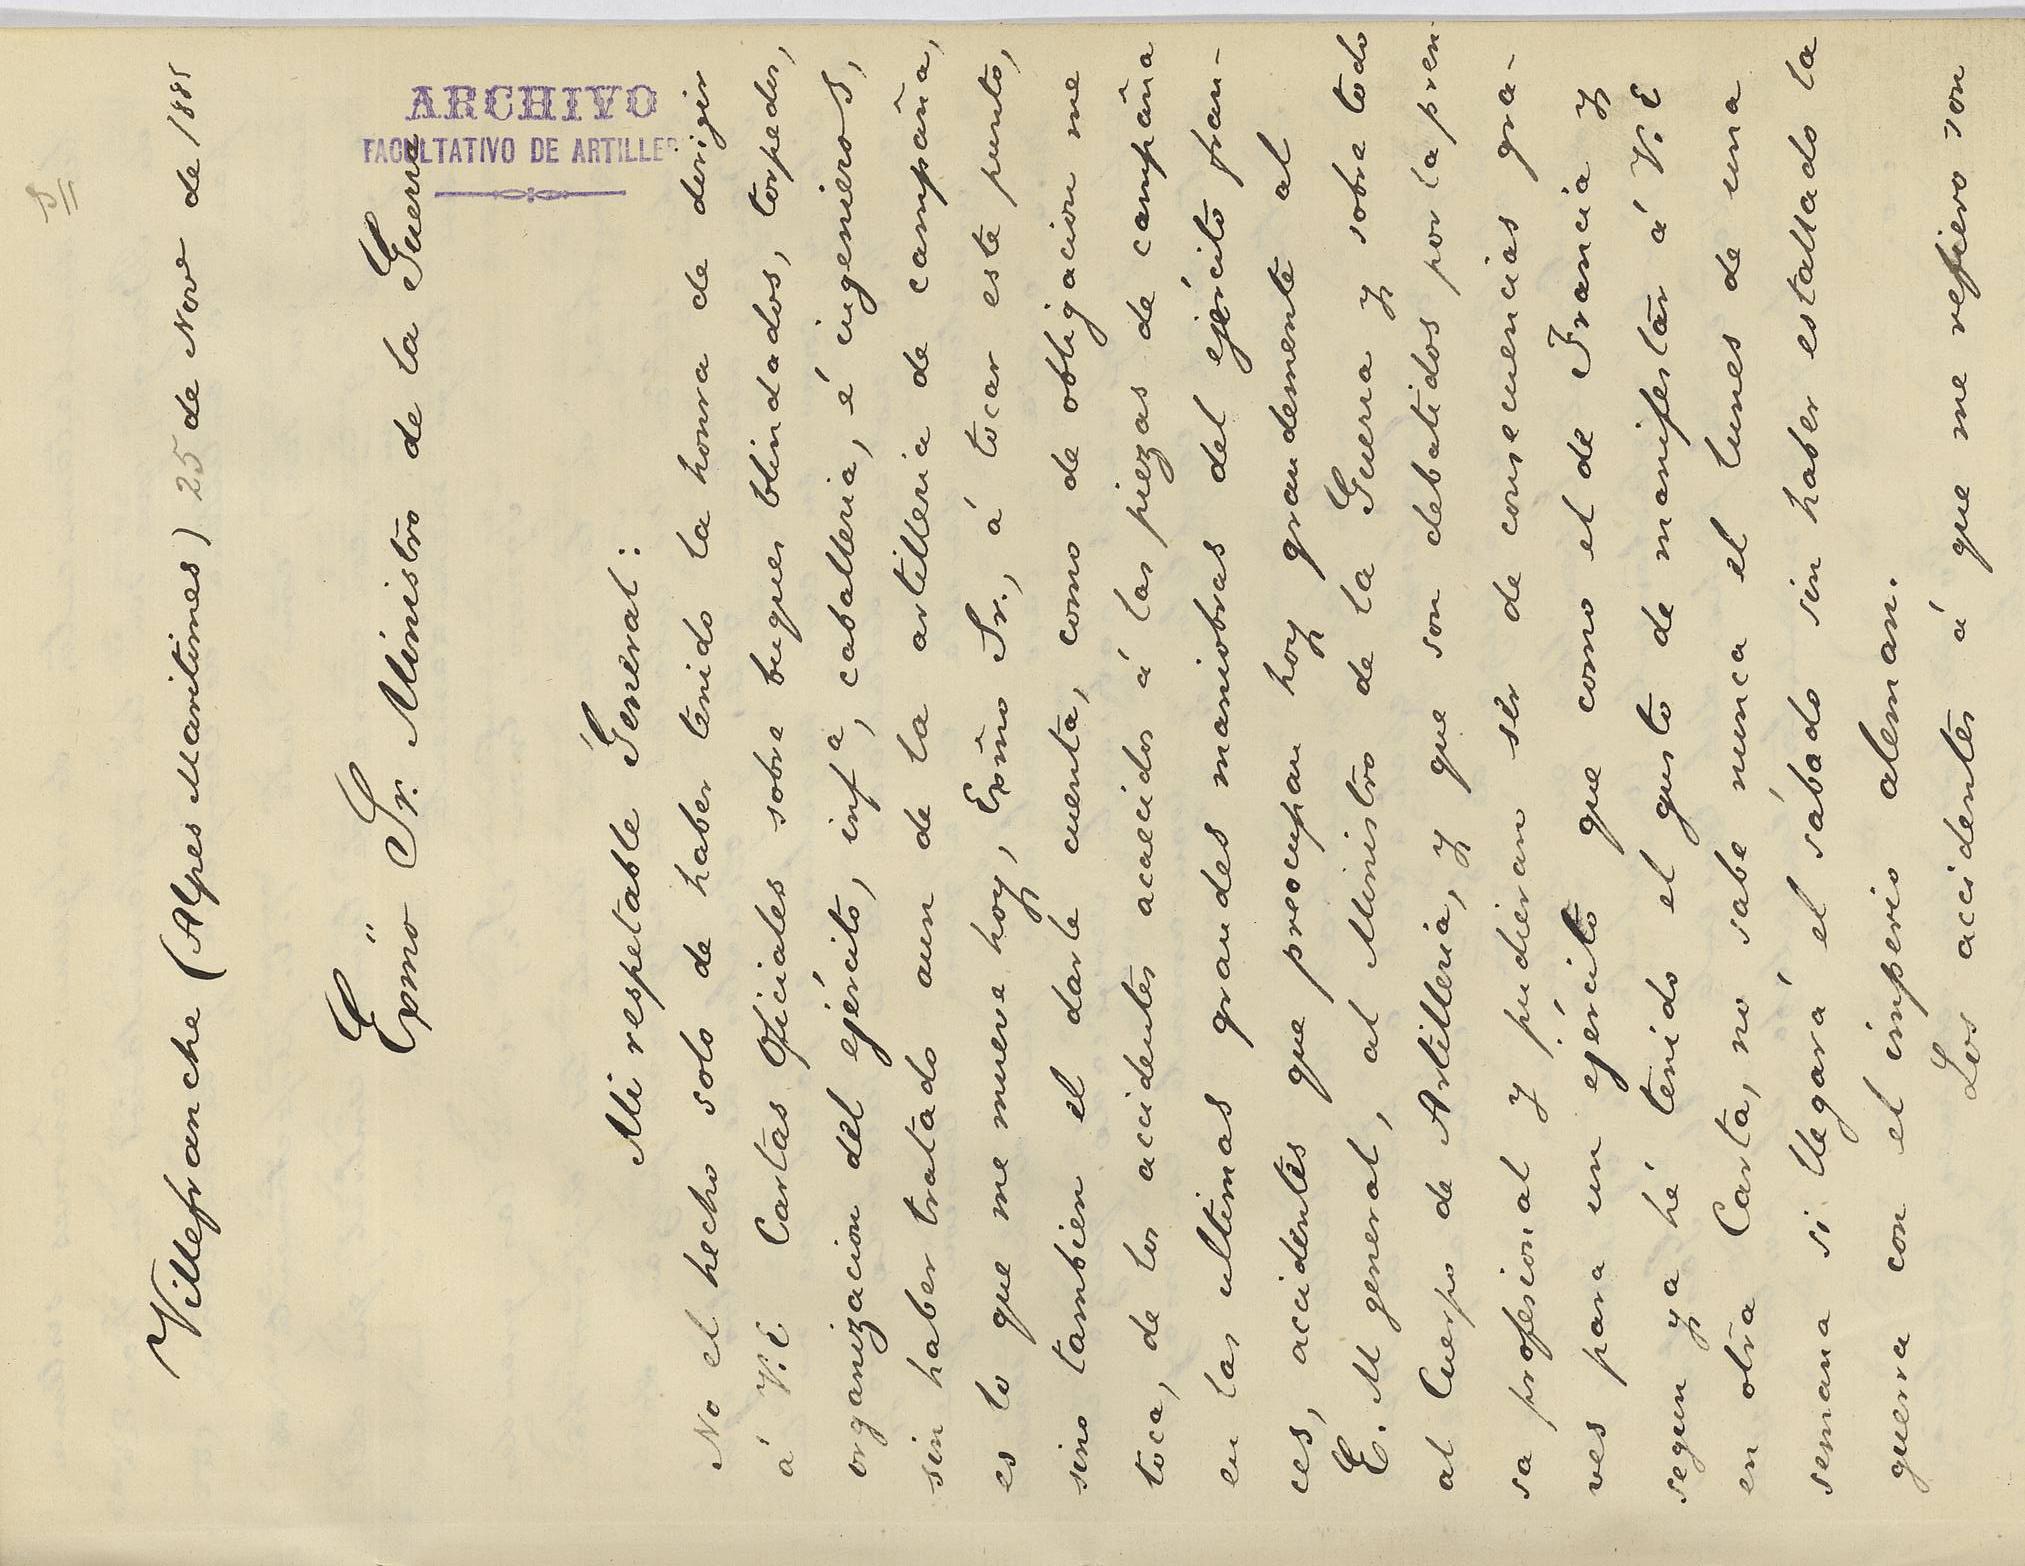 Villefranche (Alpes Maritimes) 25 de Nove de 1885
ARCHIVO
FACULTATIVO DE ARTILLER
Exmo Sr. Ministro de la Guerra
Mi respetable General:
No el hecho solo de haber tenido la honra de dirigir
á V.E Cartas Oficiales sobre buques blindados, torpedos,
organizacion del ejército, infa, caballeria, é ingenieros,
sin haber tratado aun de la artilleria de campaña,
es lo que me mueve hoy, Exmo Sr., á tocar este punto,
sino tambien el darle cuenta, como de obligacion me
toca, de los accidentes acaecidos á las piezas de campaña
en las ultimas grandes maniobras del ejército fran-
ces, accidentes que preocupan hoy grandemente al
E. M general, al Ministro de la Guerra y sobre todo
al Cuerpo de Artilleria, y que son debatidos por la pren-
sa profesional y pudieran ser de consecuencias gra-
ves para un ejército que como el de Francia y
segun ya hé tenido el gusto de manifestar á V.E
en otra Carta, no sabe nunca el lunes de una
semana si llegará el sábado sin haber estallado la
guerra con el imperio aleman.
Los accidentes á que me refiero son